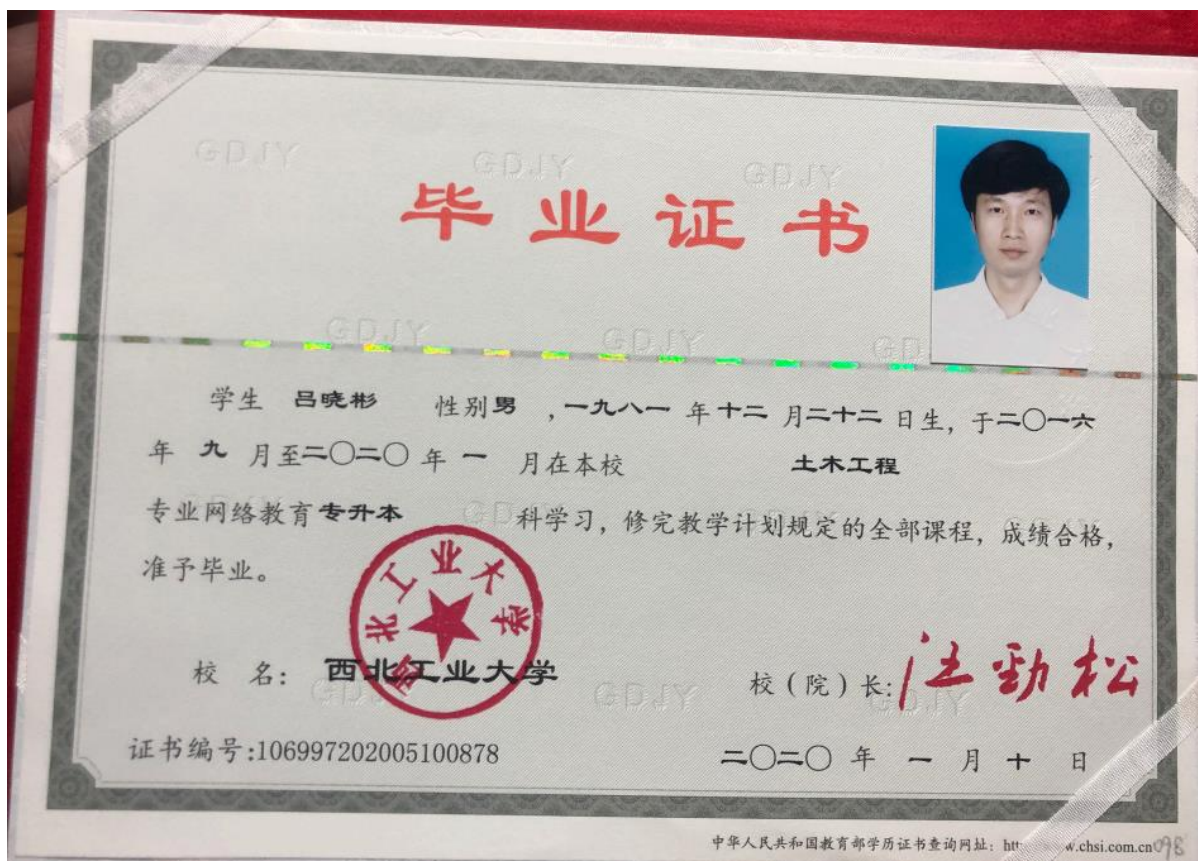 GDJY GDJY GDJY
毕业证书
GDJY GDJY GD
学生 吕晓彬 性别男 ,一九八一 年十二 月二十二 日生，于二〇一六
年 九 月至二〇二〇 年 一 月在本校 土木工程
专业网络教育专升本 科学习，修完教学计划规定的全部课程，成绩合格，
准予毕业。
西北工业大学
校 名： 西北工业大学 校（院）长: 汪劲松
GDJY GDJY GDJY
证书编号:106997202005100878 二〇二〇 年 一 月 十 日
中华人民共和国教育部学历证书查询网址： htt w.chsi.com.cn 098